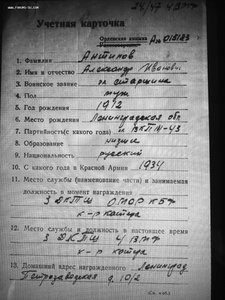 24/47
Учетная карточка
Орденская книжка
А№ 015183
1. Фамилия Антипов
2. Имя и отчество Александр Иванович
3. Воинское звание гл старшина
4. Пол муж
5. Год рождения 1912
6. Место рождения Ленинградская обл
7. Партийность (с какого года) чл ВКП(б)-43
8. Образование низшее
9. Национальность русский
10. С какого года в Красной Армии 1934
11. Место службы (наименование части) и занимаемая
должность в момент награждения
3 ДКТЩ ОХОР КБФ
к-р катера
12. Место службы и должность в настоящее время
3 ДКТЩ
к-р катера
13. Домашний адрес награжденного Ленинград
Петрозаводская д. 10/2